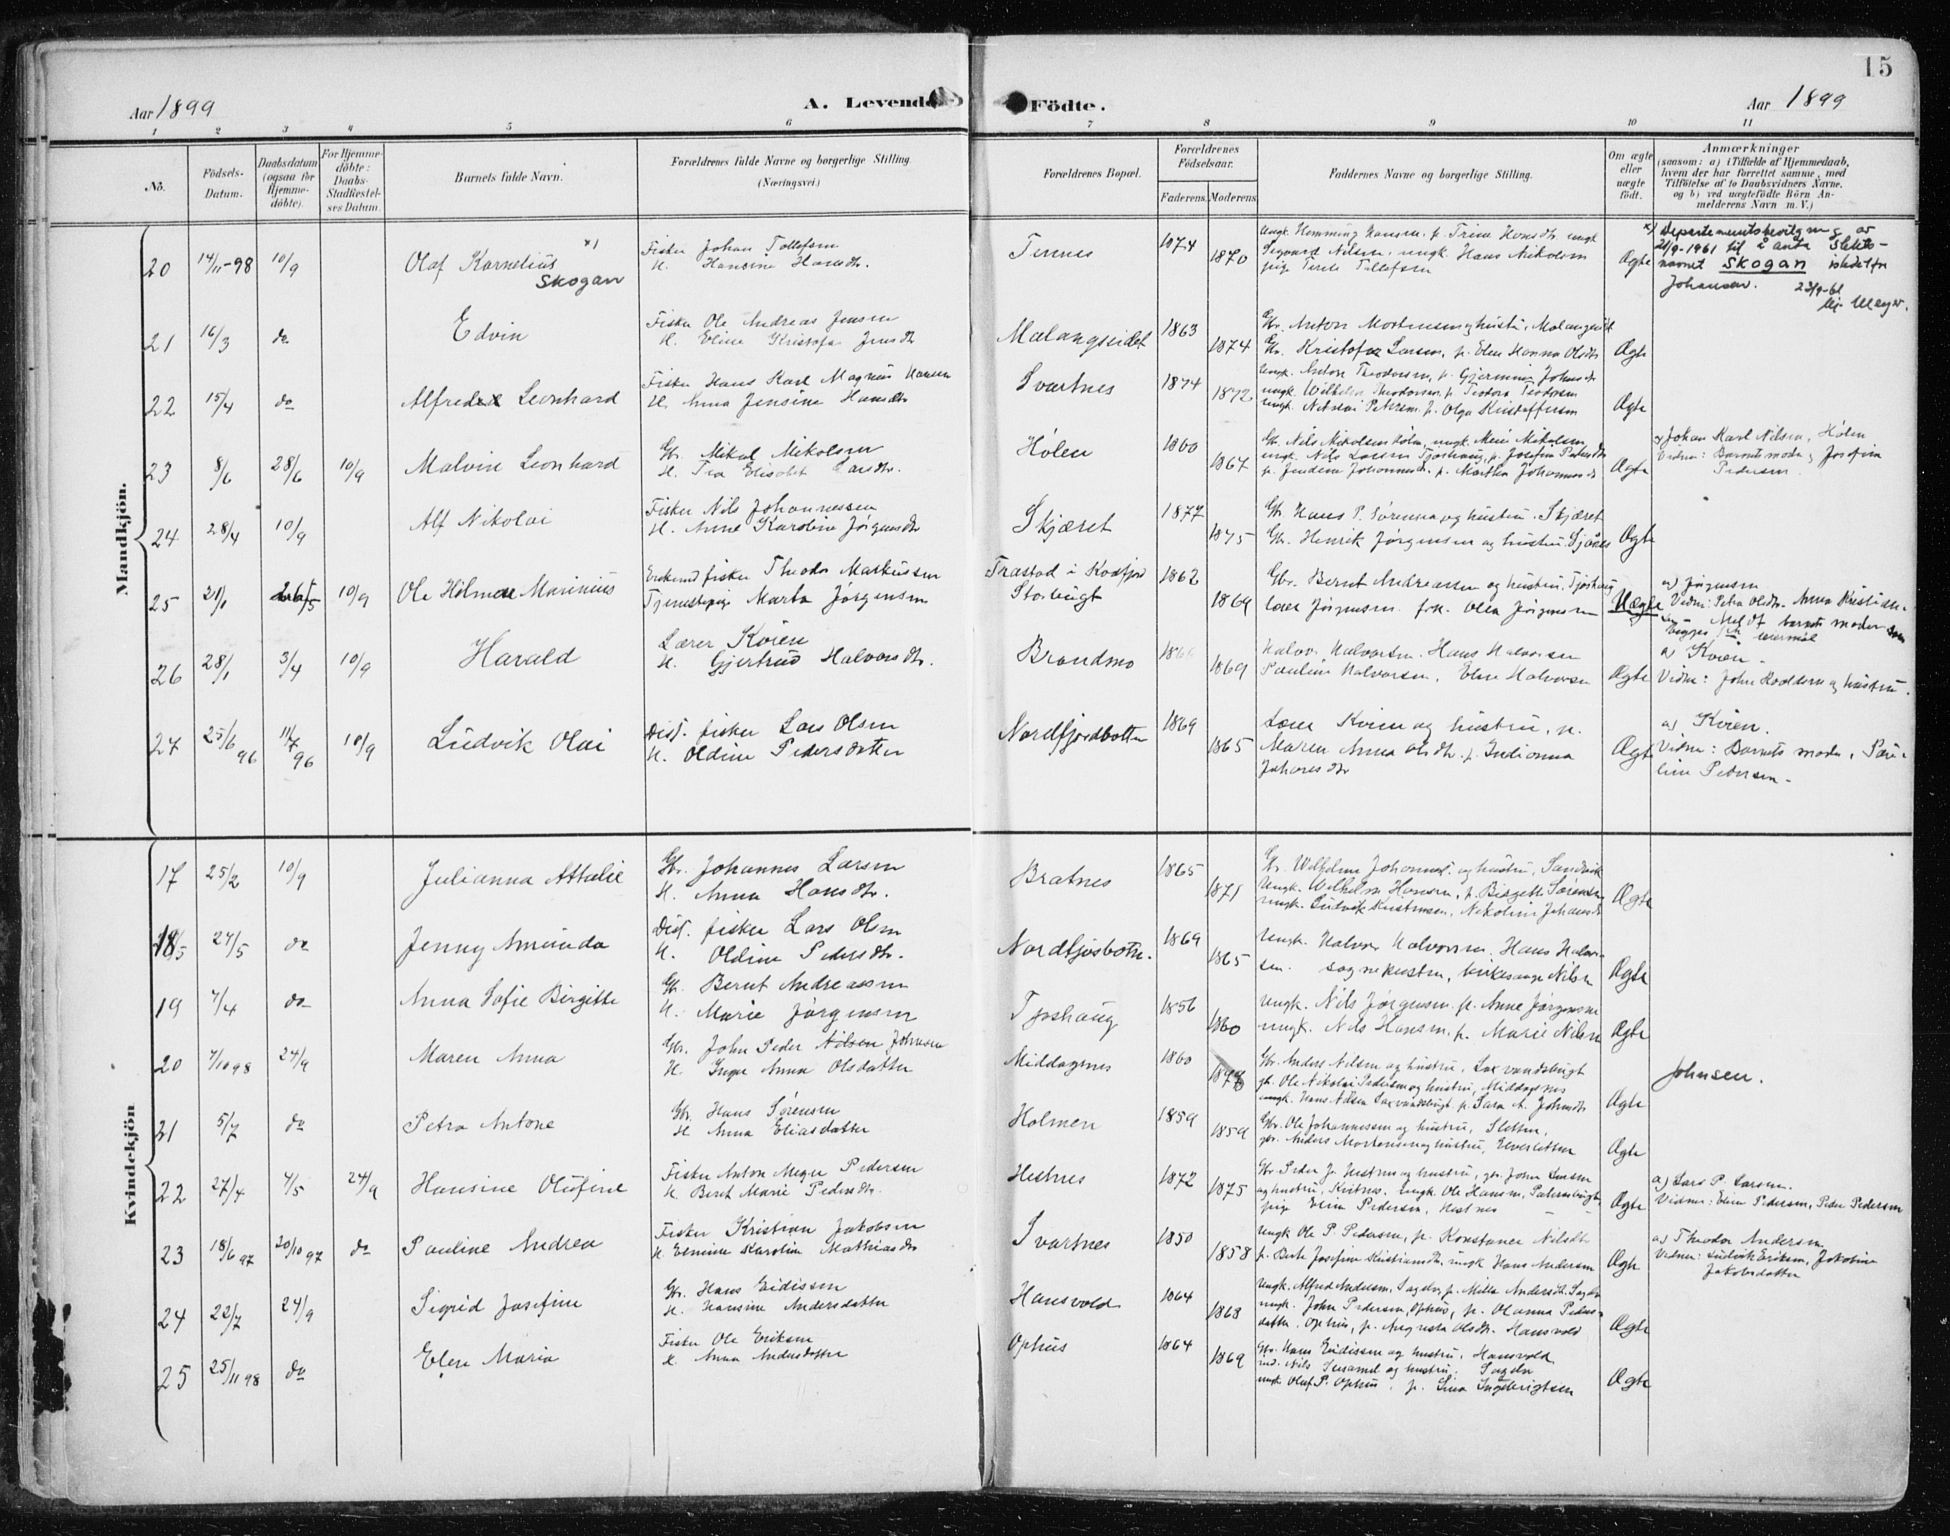 15
Aar 1899
A. Levende Födte.
Aar 1899
1 2 3 4 5 6 7 8 9 10 11
No.
Födsels-Datum.
Daabsdatum (ogsaa for Hjemme-döbte).
For Hjemme-döbte: Daabs-Stadfæstel-ses Datum.
Barnets fulde Navn.
Forældrenes fulde Navne og borgerlige Stilling.
(Næringsvei.)
Forældrenes Bopæl.
Forældrenes Födselsaar.
Faderens. Moderens.
Faddernes Navne og borgerlige Stilling.
Om ægte eller uægte födt.
Anmærkninger
(saasom: a) i Tilfælde af Hjemmedaab,
hvem der har forrettet samme, med
Tilföielse af to Daabsvidners Navne,
og b) ved uægtefödte Börn An-
melderens Navn m. V.)
Mandkjön.
20 14/11-98 10/9 Olaf Kornelius x) Skogan
Fisker Johan Tollefsen
H. Hansine Hansdtr.
Tennes 1874 1870
Ungk. Hemming Hansen, p. Trine Hansdtr. ungk
Sigvard Nilsen, ungk. Hans Nikolsen
pige Terese Tollefsen
Ægte
x) Departementsbevilgning av
21/9-1961 til å anta slekts-
navnet Skogan istedetfor
Johansen. 23/9-61
21 16/3 do Edvin
Fisker Ole Andreas Jensen
H. Eline Kristofa Jensdtr
Malangseidet 1863 1874
Gbr. Anton Mortensen og hustru, Malangseidet
Gbr. Kristofer Larsen, p. Elen Hanna Olsdtr
Ægte
22 15/4 do Alfred Leonhard
Fisker Hans Karl Magnus Hansen
H. Anna Jensine Hansdtr
Svartnes 1874 1872
ungk. Anton Theodorsen, p. Johansdtr
ungk. Wilhelm Theodorsen, p. Teodora Teodorsen
ungk. Nikolai Petersen, p. Olga Kristoffersen
Ægte
23 8/6 28/6 10/9 Malvin Leonhard
Gbr. Mikal Mikolsen
H. Elisabet Larsdtr.
Hölen 1860 1867
Gbr. Nils Mikolsen Hölen, ungk. Mikolsen
ungk. Nils Larsen Tjoshaug, p. Josefine Pedersdtr
p. Johannesdtr. p. Martha Johannesdtr
Ægte
a) Johan Karl Nilsen, Hölen
Vidner: Barnets moder, Josefine
Pedersen
24 28/4 10/9 Alf Nikolai
Fisker Nils Johannessen
H. Anne Karoline Jørgensdtr
Skjæret 1877 1875
Gbr. Hans P. Sørensen og hustru, Skjæret
Gbr. Henrik Jørgensen og hustru,
Ægte
25 21/1 26/5 10/9 Ole Holmer Marinius
Enkemd fisker Theodor Markussen
Tjenestepige Marta Jørgensen
Trastad i Kvæfjord
Storbugt 1862 1869
Gbr. Bernt Andreassen og hustru, Tjoshaug
Lars Jørgensen. frk. Olea Jørgensen
Uægte
a) Jørgensen
Vidner: Petra Olsdtr. Anna Kristian-
sen Meldt barnets moder som
begges 1ste leiermål
26 28/1 3/4 10/9 Harald
Lærer Kvien
H. Gjertrud Halvorsdtr.
Brandmo 1866 1869
Halvor Halvorsen. Hans Halvorsen
Pauline Halvorsen, Elen Halvorsen
Ægte
a) Kvien.
Vidner: John Roaldsen og hustru.
27 25/6 96 11/7 96 10/9 Ludvik Olai
Disp. fisker Lars Olsen
H. Oldine Pedersdatter
Nordfjordbotten 1869 1865
Lærer Kvien og hustru, p.
Maren Anna Olsdtr. p. Indianna
Johansdtr
Ægte
a) Kvien.
Vidner: Barnets moder, Pau-
line Pedersen.
Kvindekjön
17 25/2 10/9 Julianna Attalie
Gbr. Johannes Larsen
H. Anna Hansdtr.
Bratnes 1865 1871
Gbr. Wilhelm Johannes. og hustru, Sandvik
Ungk. Wilhelm Hansen, p. Birgitte Sørensen
ungk. Ludvik Kristensen, Nikoline Johansdtr
Ægte
18 27/5 do Jenny Amanda
Disp. fisker Lars Olsen
H. Oldine Pedersdtr.
Nordfjosbotn. 1869 1865
Ungk. Halvor Halvorsen. Hans Halvor-
sen. sognepresten, kirkesanger Nilsen
Ægte
19 7/4 do Anna Sofie Birgitte
Gbr. Bernt Andreassen
H. Marie Jørgensen
Tjoshaug 1856 1860
Ungk. Nils Jørgensen, p. Anne Jørgensen
ungk. Nils Hansen, p. Marie Nilsen
Ægte
20 7/10 98 24/9 Maren Anna
Gbr. John Peder Nilsen, Johnsen
H. Inger Anna Olsdatter
Middagsnes 1860
Gbr. Anders Nilsen og hustru, Laxvandsbugt
gb. Ole Nikolai Pedersen og hustru, Middagsnes
ungk. Hans Nilsen Laxvandsbugt, p. Sara A. Johnsdtr
Ægte
Johnsen.
21 5/7 do Petra Antone
Gbr. Hans Sørensen
H. Anna Eliasdatter
Holmen 1859 1859
Gbr. Ole Johannessen og hustru, Sletten,
gbr. Anders Mortensen og hustru, Elvesletten
Ægte
22 27/4 4/5 24/9 Hansine Olufine
Fisker Anton Meyer Pedersen
H. Beret Marie Pedersdtr.
Hestnes 1872 1875
Gbr. Peder J. Hestnes og hustru, gbr. John Larsen
og hustru, Kvitnes. ungk. Ole Hansen,
pige Elen Pedersen, Hestnes
Ægte
a) Lars P. Larsen.
Vidner: Elen Pedersen, Peder Pedersen
23 18/6 97 20/10 97 do Pauline Andrea
Fisker Kristian Jakobsen
H. Karoline Mathiasdtr
Svartnes 1850 1858
Ungk Ole P. Pedersen, p. Konstance Nilsdtr
p. Berte Josefine Kristiansdtr, ungk Hans Andersen
Ægte
a) Theodor Andersen
Vidner: Ludvik Eriksen, Jakobine
Jakobsdatter
24 22/7 24/9 Sigrid Josefine
Gbr. Hans Eidissen
H. Hansine Andersdatter
Hansvold 1864 1868
ungk. Alfred Andersen, Sagelv, p. Milla Andersdtr. Sagelv
ungk. John Pedersen, Ophus, p. Olanna Peders-
datter, Ophus, p. Augusta Olsdtr. Hansvold
Ægte
25 25/11 98 do Elen Maria
Fisker Ole Eriksen
H. Anna Andersdatter
Ophus 1864 1869
Gbr. Hans Eidissen og hustru, Hansvold
ind. Nils og hustru, Sagelv
ungk Oluf P. Ophus, p. Lina Ingebrigtsen
Ægte